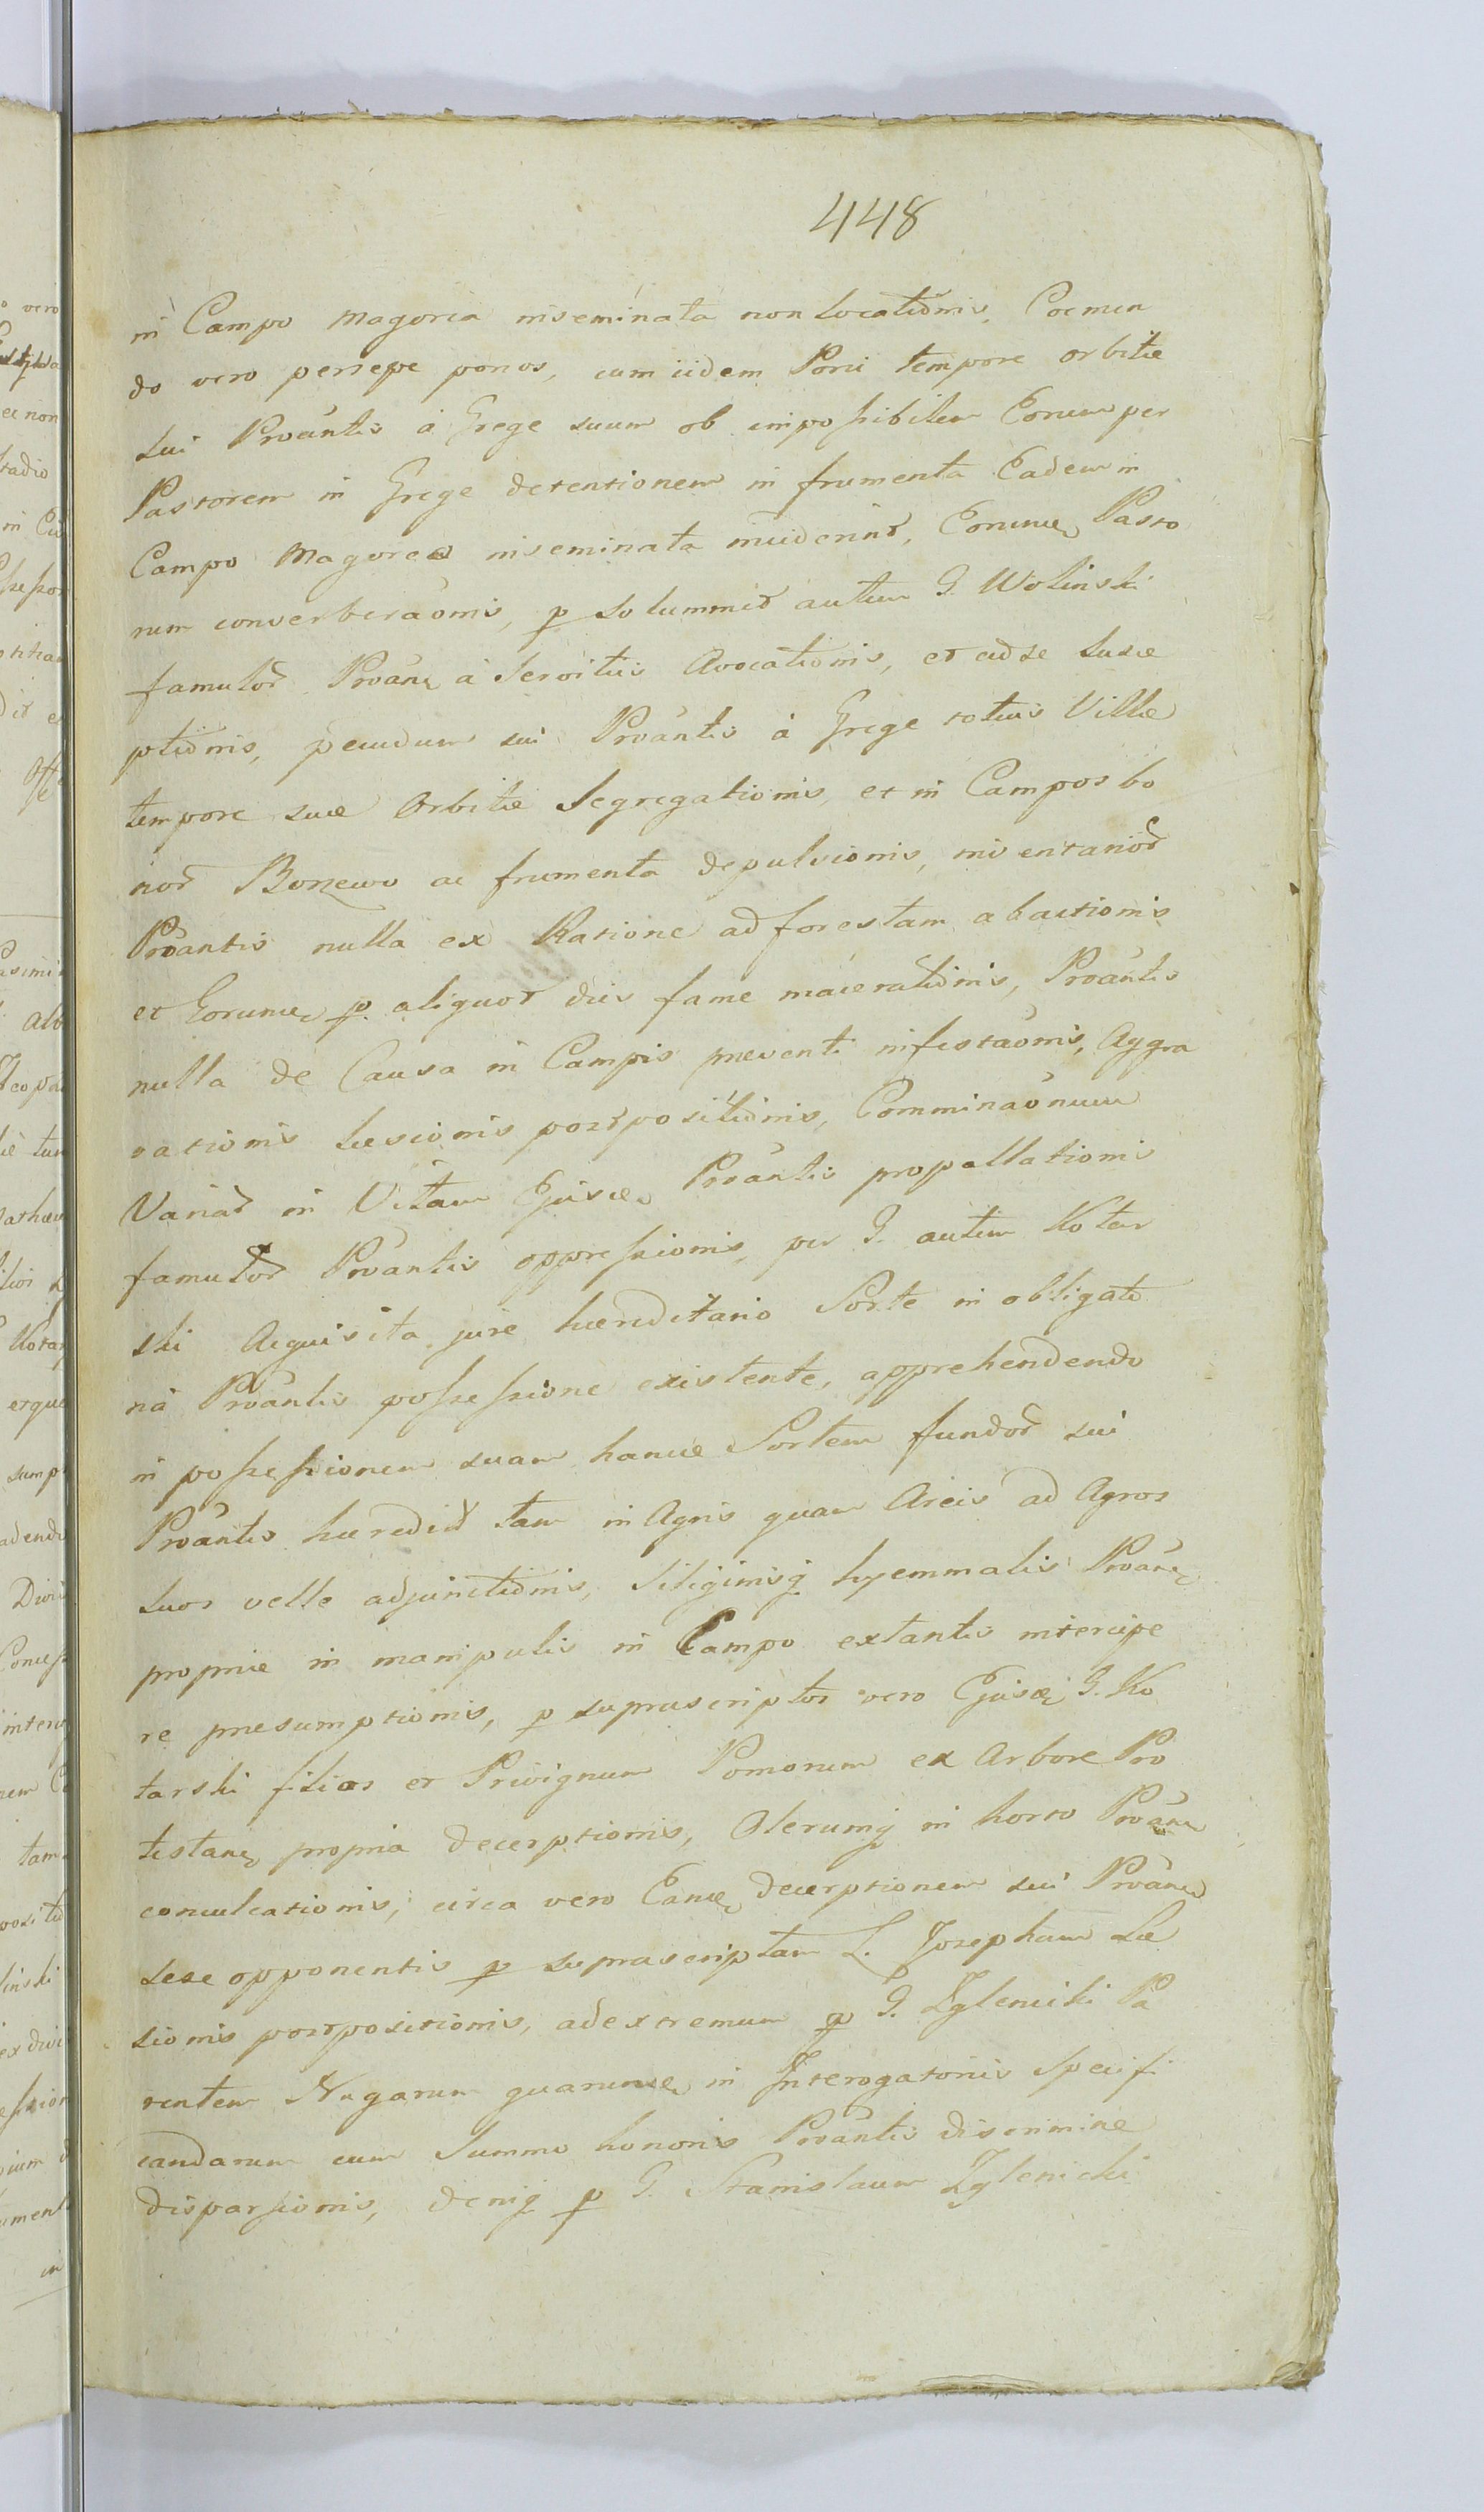 448
in Campo Magorca inseminata non locationis, Coemen
do vero persepe porcos, cum iidem Porci tempore orbitæ
sui Proantis à Grege suum ob impossibilem Eorum per
Pastorem in Grege detentionem in frumenta Eadem in
Campo Magorca inseminata inciderint, Eorumq Pasto
rum converberaonis, p solummet autem G. Wolinski
famulor Proan à Servitiis Avocationis, et ad se susce
ptionis, pecudum sui Proantis à Grege totius Villæ
tempore suæ Orbitæ Segregationis et in Campos bo
nor Bonzewo ac frumenta depulsionis, inventarior
Proantis nulla ex Ratione ad forestam abactionis
et Eorumq p aliquot dies fame macerationis, Proantis
nulla de Causa in Campis preventi infestaonis, Aggra
vationis læsionis postpositionis, Comminaonum
Variar in Vitam Ejusd Proantis propallationis
famulor Proantis oppressionis, per G. autem Kotar
ski Acquisita jure hæreditario Sorte in obligato
riâ Proantis possessione existente, apprehendendo
in possessionem suam hancce Sortem fundor sui
Proantis hæredit tam in Agris quam Areis ad Agros
suos velle adjunctionis, Siliginisq hyemmalis Proan
propriæ in manipulis in Campo extantis intercipe
re presumptionis, p suprascriptos vero Ejusd G. Ko
tarski filios et Privignum Pomorum ex Arbore Pro
testan propria decerptionis, Olerumq in horto Proan
conculcationis, circa vero Eamd decerptionem sui Proan
sese opponentis p suprascriptam L. Josepham Læ
sionis postpositionis, ad extremum p G. Zglenicki Pa
rentem Nugarum quarumcq in Interogatoriis Specifi
candarum cum Summo honoris Proantis discrimine
disparsionis, deniq p G. Stanislaum Zglenicki